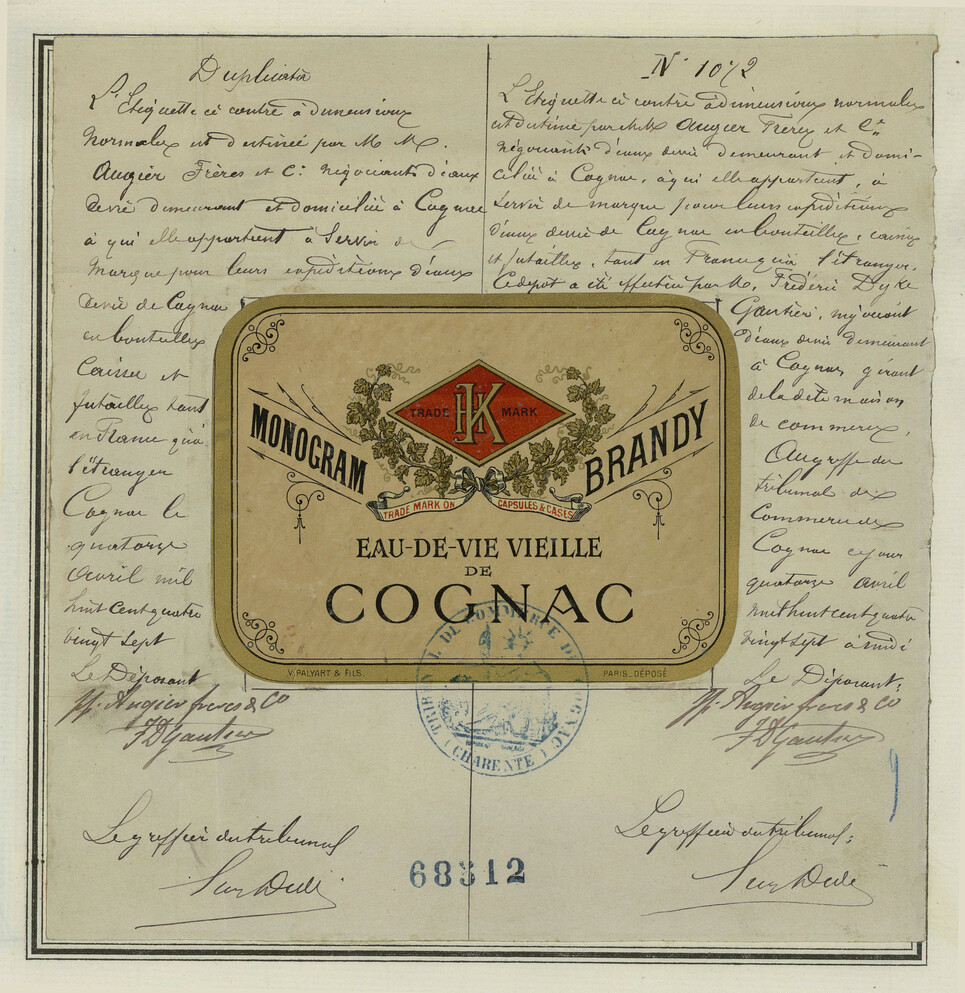 Duplicata
L'Etiquette ci contre à dimensions
Normales est destinée par M M.
Augier Frères et Cie Négociants d'eaux
devie demeurant et domiciliés à Cognac
à qui elle appartient à Servir de
Marque pour leurs expéditions d'eaux
devie de Cognac
en bouteilles
Caisses et
futailles tant
en France qu'à
l'étranger
Cognac le
quatorze
Avril mil
huit cent quatre
vingt sept
Le Déposant
pp. Augier freres & Co
F D Gautier
Le greffier du tribunal
N° 1072
L'Etiquette ci contre à dimensions normales
est destinée par M.M. Augier Freres et Cie
négociants d'eaux devie demeurant et domi-
ciliés à Cognac, à qui elle appartient, à
servir de marque pour leurs expéditions
d'eaux devie de Cognac en bouteilles, caisses
et futailles, tant en France qu'à l'étranger.
Ce depot a été effectué par M. Frédéric Dyke
Gautier, négociant
d'eaux devie demeurant
à Cognac gérant
de la dite maison
de commerce,
Au greffe du
tribunal de
Commerce de
Cognac ce jour
quatorze avril
mil huit cent quatre
vingt sept à midi
Le Déposant:
pp. Augier freres & Co
F D Gautier
Le greffier du tribunal:
HK
TRADE MARK
MONOGRAM BRANDY
TRADE MARK ON CAPSULES & CASES
EAU-DE-VIE VIEILLE
DE
COGNAC
V. PALYART & FILS. PARIS_DÉPOSÉ
TRIBUNAL DE COMMERCE DE COGNAC
(CHARENTE)
68312